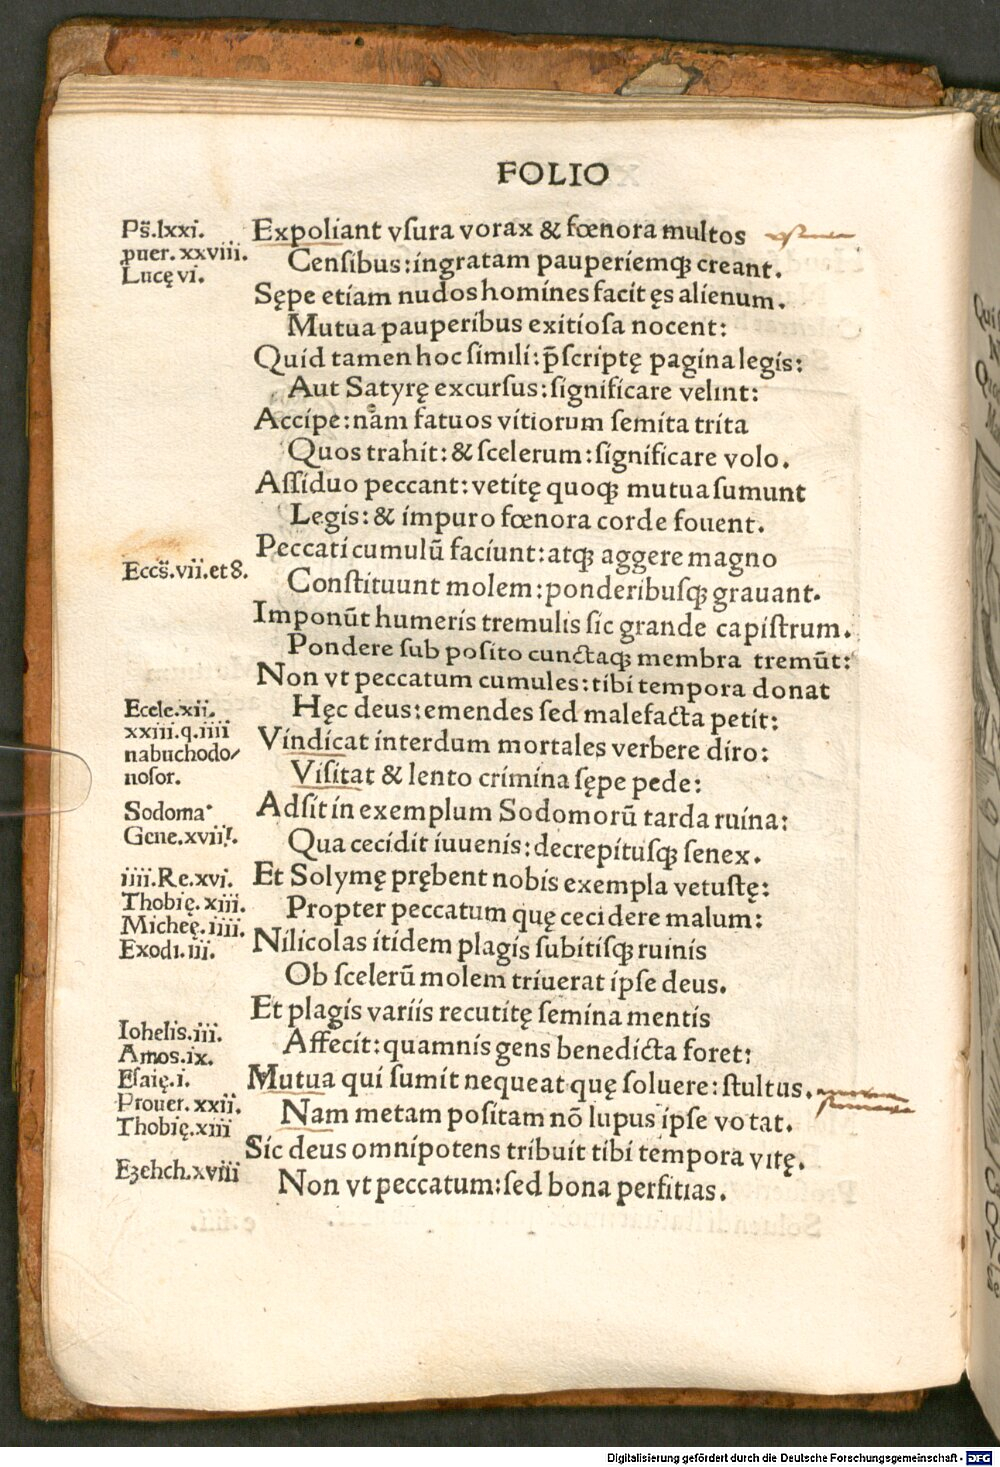 FOLIO
Ps̄.lxxi.
ꝓuer.xxviii.
Lucę vi.
Expoliant vſura vorax & fœnora multos
Cenſibus:ingratam pauperiemqꝫ creant.
Sępe etiam nudos homines facit ęs alienum.
Mutua pauperibus exitioſa nocent:
Quid tamen hoc ſimili:p̄ſcriptę pagina legis:
Aut Satyrę excurſus:ſignificare velint:
Accipe:nam fatuos vitiorum ſemita trita
Quos trahit:& ſcelerum:ſignificare volo.
Aſſiduo peccant:vetitę quoqꝫ mutua ſumunt
Legis:& impuro fœnora corde fouent.
Eccs̄.vii.et 8.
Peccati cumulū faciunt:atqꝫ aggere magno
Conſtituunt molem:ponderibuſqꝫ grauant.
Imponūt humeris tremulis ſic grande capiſtrum.
Pondere ſub poſito cunctaqꝫ membra tremūt:
Non vt peccatum cumules:tibi tempora donat
Ecele.xii.
xxiii.q.iiii
nabuchodo/
noſor.
Hęc deus:emendes ſed malefacta petit:
Vindicat interdum mortales verbere diro:
Viſitat & lento crimina ſępe pede:
Sodoma
Gene.xviii.
Adſit in exemplum Sodomorū tarda ruina:
Qua cecidit iuuenis:decrepituſqꝫ ſenex.
iiii.Re.xvi.
Thobię.xiii.
Micheę.iiii.
Exodi.iii.
Et Solymę prębent nobis exempla vetuſtę:
Propter peccatum quę cecidere malum:
Nilicolas itidem plagis ſubitiſqꝫ ruinis
Ob ſcelerū molem triuerat ipſe deus.
Et plagis variis recutitę ſemina mentis
Iohelis.iii.
Amos.ix.
Eſaię.i.
Prouer.xxii.
Thobię.xiii
Affecit:quamnis gens benedicta foret:
Mutua qui ſumit nequeat quę ſoluere:ſtultus.
Nam metam poſitam nō lupus ipſe votat.
Sic deus omnipotens tribuit tibi tempora vitę.
Ezehch.xviii
Non vt peccatum:ſed bona perfitias.
Digitalisierung gefördert durch die Deutsche Forschungsgemeinschaft - DFG